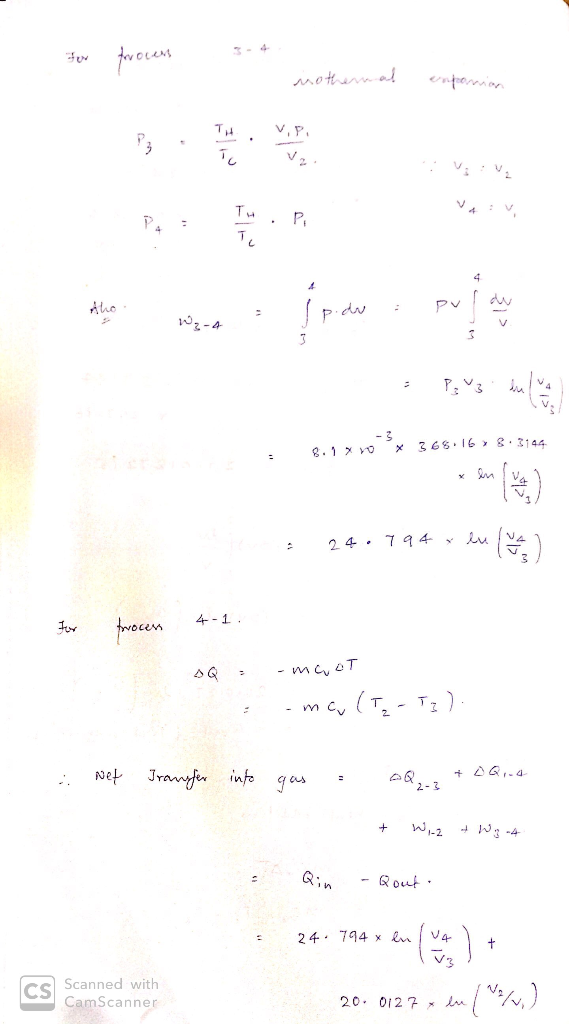 For process 3-4.
isothermal expansion
P3 = TH/TC . V1P1/V2.
∵ V3 = V2
V4 = V1
P4 = TH/TC . P1
Also W3-4 = ∫₃⁴ p.dv = pv ∫₃⁴ dv/v
= P3V3 ln(V4/V3)
= 8.1 x 10^-3 x 368.16 x 8.3144
x ln(V4/V3)
= 24.794 x ln(V4/V3)
For process 4-1.
ΔQ = - mCvΔT
= - mCv (T2 - T3).
∴ Net Transfer into gas = ΔQ2-3 + ΔQ1-4
+ W1-2 + W3-4
= Qin - Qout.
= 24.794 x ln(V4/V3) +
20.0127 x ln(V2/V1)
CS Scanned with
CamScanner